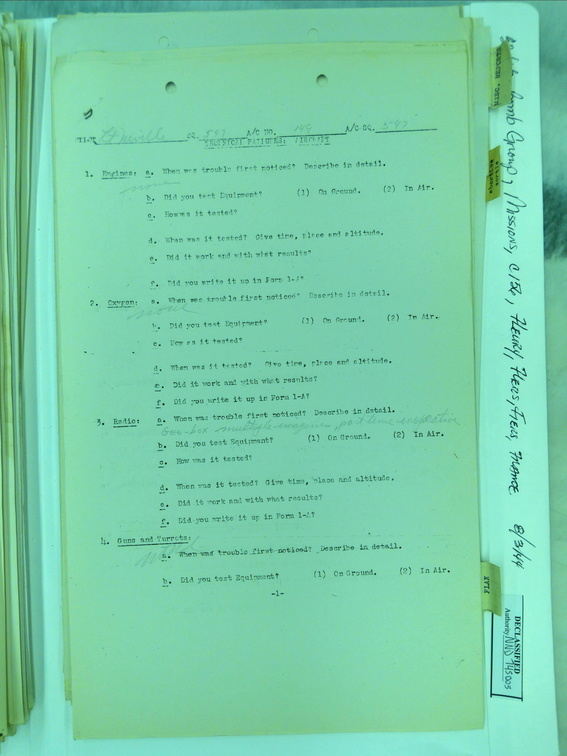 SQ. 547 A/C NO. A/C SQ. 547
TECHNICAL FAILURES: AIRCRAFT
1. Engines: a. When was trouble first noticed? Describe in detail.
none
b. Did you test Equipment? (1) On Ground. (2) In Air.
c. How was it tested?
d. When was it tested? Give time, place and altitude.
e. Did it work and with what results?
f. Did you write it up in Form 1-A?
2. Oxygen: a. When was trouble first noticed? Describe in detail.
none
b. Did you test Equipment? (1) On Ground. (2) In Air.
c. How as it tested?
d. When was it tested? Give time, place and altitude.
e. Did it work and with what results?
f. Did you write it up in Form 1-A?
3. Radio: a. When was trouble first noticed? Describe in detail.
b. Did you test Equipment? (1) On Ground. (2) In Air.
c. How was it tested?
d. When was it tested? Give time, place and altitude.
e. Did it work and with what results?
f. Did you write it up in Form 1-A?
4. Guns and Turrets:
a. When was trouble first noticed? Describe in detail.
b. Did you test Equipment? (1) On Ground. (2) In Air.
-1-
Bomb Group, Missions, 8/3/44
FLAK
DECLASSIFIED
Authority NND 745005